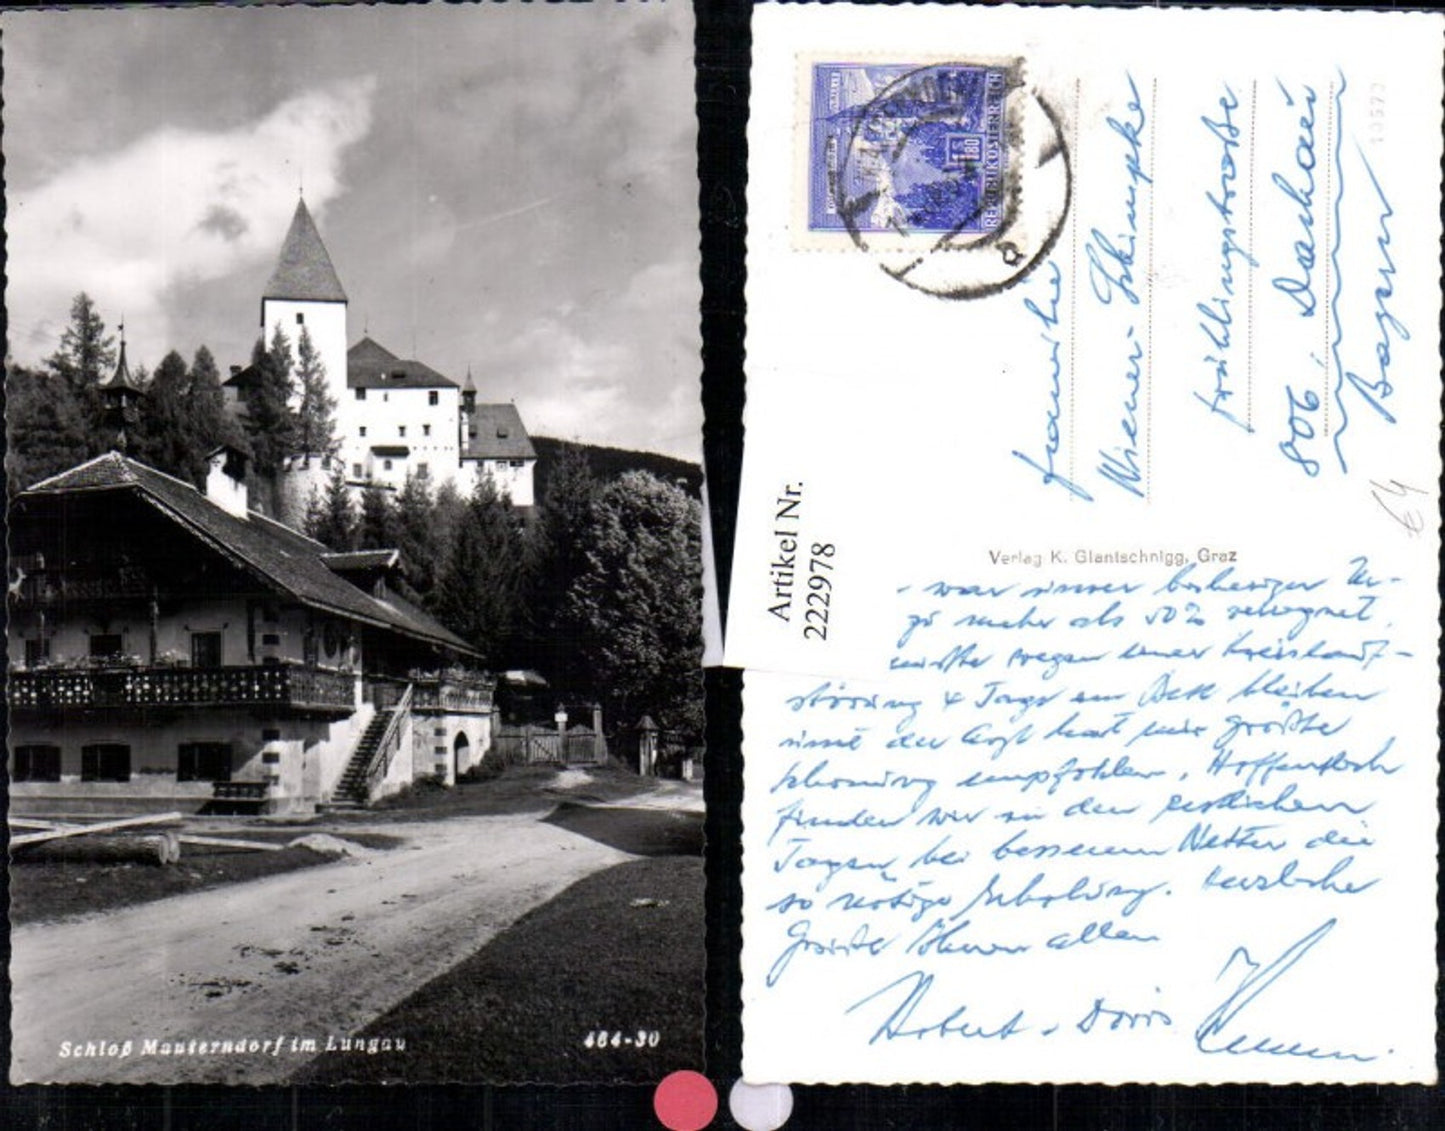 Schloß Mauterndorf im Lungau
464-30
REPUBLIK ÖSTERREICH
S 1.80
Artikel Nr.
222978
Familie
Wiener-
Frühlingstraße
806, Dachau
Bayern
€4
Verlag K. Glantschnigg, Graz
- war unser bisheriger
mehr als 50% verregnet,
mußte wegen einer Kreislauf-
störung 4 Tage im Bett bleiben
und der Arzt hat mir größte
Schonung empfohlen. Hoffentlich
finden wir in den restlichen
Tagen bei besserem Wetter die
so nötige Erholung. Herzliche
Grüße Ihnen allen
Robert u. Doris